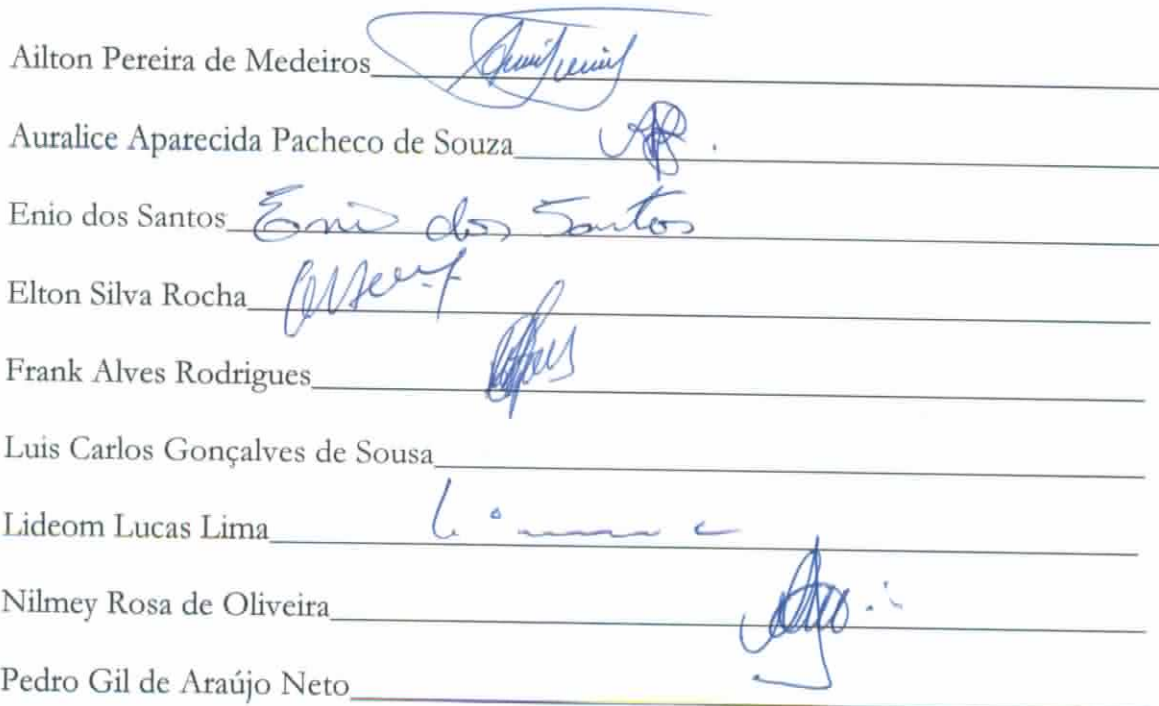 Ailton Pereira de Medeiros
Auralice Aparecida Pacheco de Souza
Enio dos Santos Enio dos Santos
Elton Silva Rocha
Frank Alves Rodrigues
Luis Carlos Gonçalves de Sousa
Lideom Lucas Lima
Nilmey Rosa de Oliveira
Pedro Gil de Araújo Neto